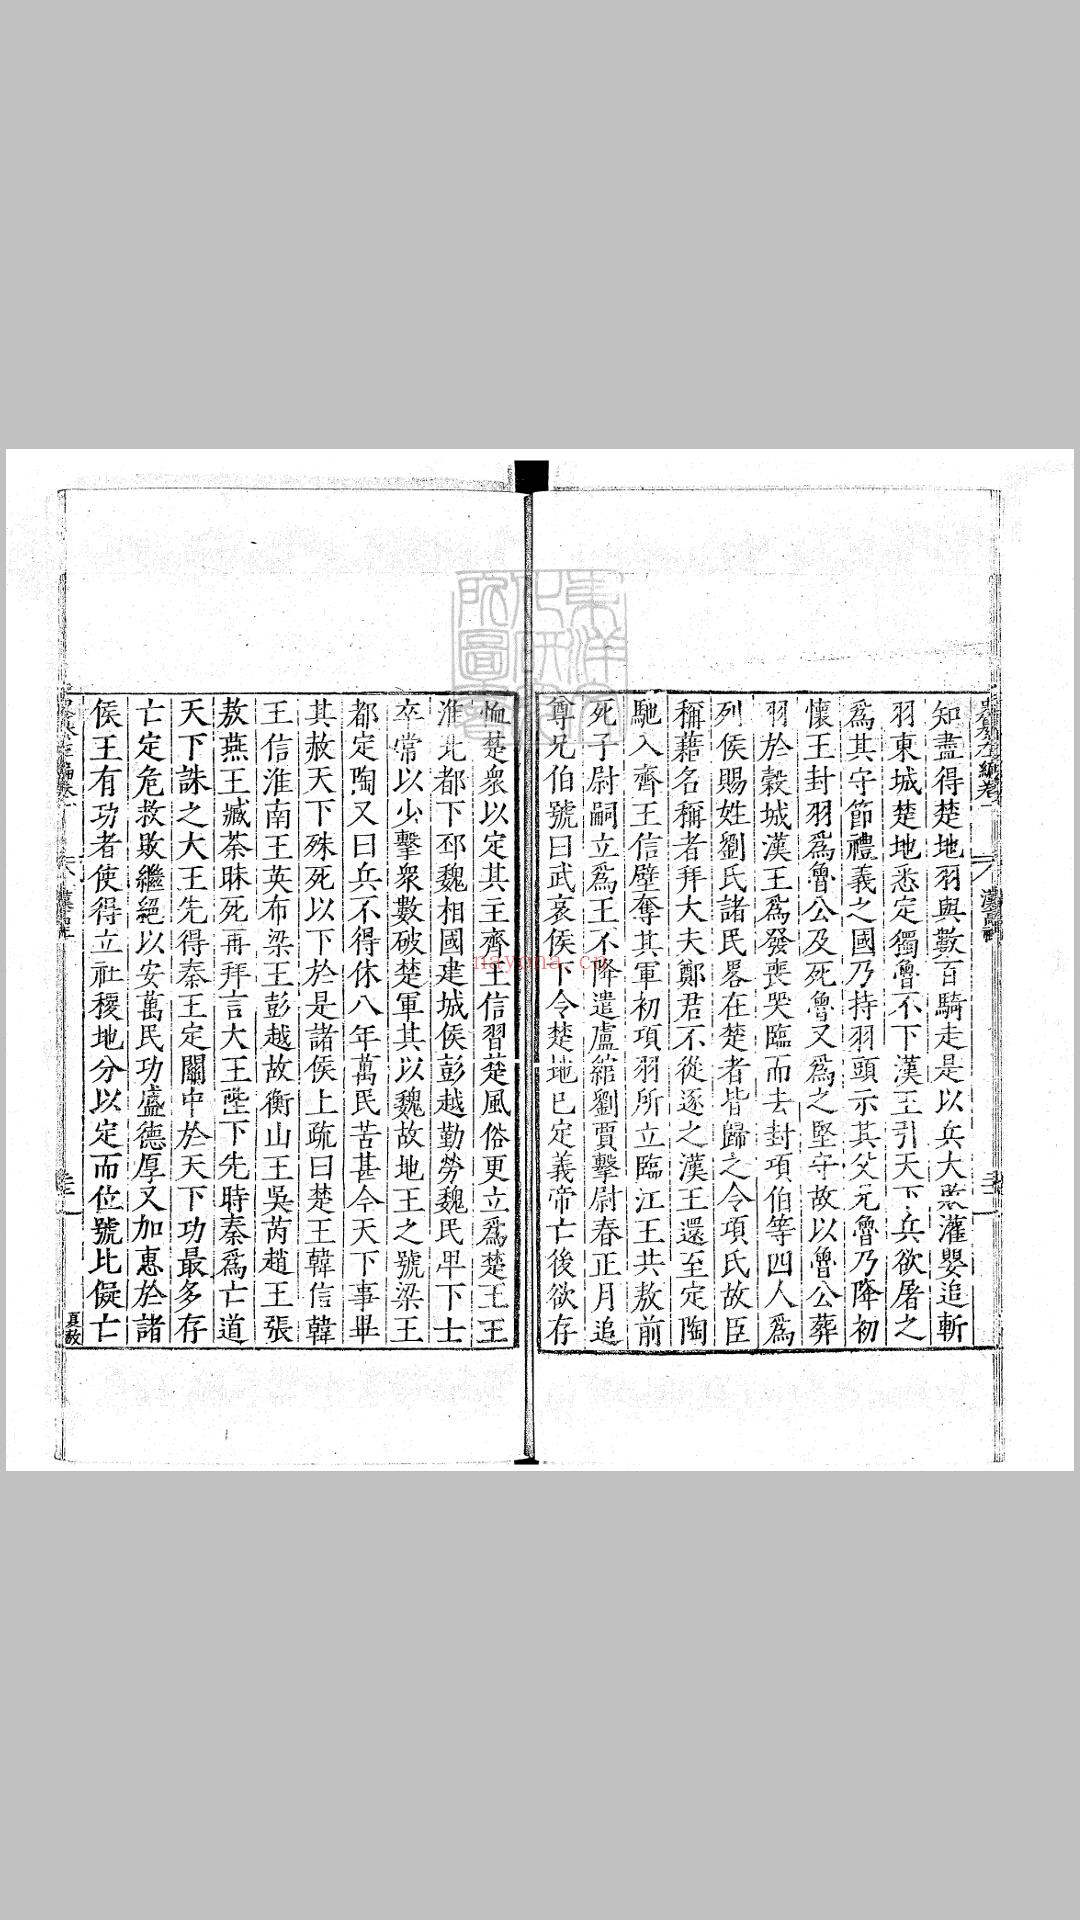 知盡得楚地羽與數百騎走是以兵大敗灌嬰追斬
羽東城楚地悉定獨魯不下漢王引天下兵欲屠之
爲其守節禮義之國乃持羽頭示其父兄魯乃降初
懷王封羽爲魯公及死魯又爲之堅守故以魯公葬
羽於穀城漢王爲發喪哭臨而去封項伯等四人爲
列侯賜姓劉氏諸民畧在楚者皆歸之令項氏故臣
稱藉名稱者拜大夫鄭君不從逐之漢王還至定陶
馳入齊王信壁奪其軍初項羽所立臨江王共敖前
死子尉嗣立爲王不降遣盧綰劉賈擊尉春正月追
尊兄伯號曰武哀侯下令楚地已定義帝亡後欲存
恤楚衆以定其主齊王信習楚風俗更立爲楚王王
淮北都下邳魏相國建城侯彭越勤勞魏民卑下士
卒常以少擊衆數破楚軍其以魏故地王之號梁王
都定陶又曰兵不得休八年萬民苦甚今天下事畢
其赦天下殊死以下於是諸侯上疏曰楚王韓信韓
王信淮南王英布梁王彭越故衡山王吳芮趙王張
敖燕王臧荼昧死再拜言大王陛下先時秦爲亡道
天下誅之大王先得秦王定關中於天下功最多存
亡定危救敗繼絕以安萬民功盛德厚又加惠於諸
侯王有功者使得立社稷地分以定而位號比儗亡
nayona.cn